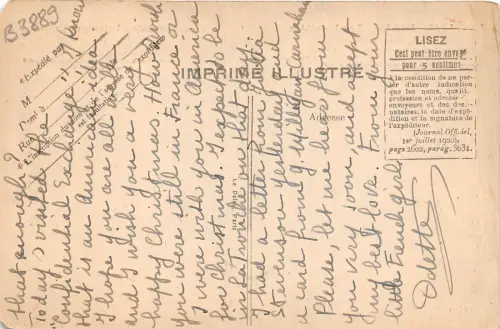 B3889
IMPRIMÉ ILLUSTRÉ
Expédié par
M
Demt à
Rue
Adresse
LISEZ
Ceci peut être envoyé
pour 5 centimes
à la condition de ne por-
ter d'autre indication
que les noms, qualité,
profession et adresse
envoyeurs et des des-
nataires, la date d'ex-
édition et la signature de
l'expéditeur.
(Journal Officiel,
1er juillet 1920),
page 2602, parag. 3631.
that enough?
Today I visited
"Confidential Exchange"
that is an American idea
I hope you are all well
and I wish you a real
happy Christmas. How I wish
you were still in France or
I were with you in America
for Christmas. I expect to be
in on that day
I had a letter from
Stevenson yesterday and
a card from William Carnahan
Please, let me hear from
you very soon and accept
my best love. From your
little French girl
Odette